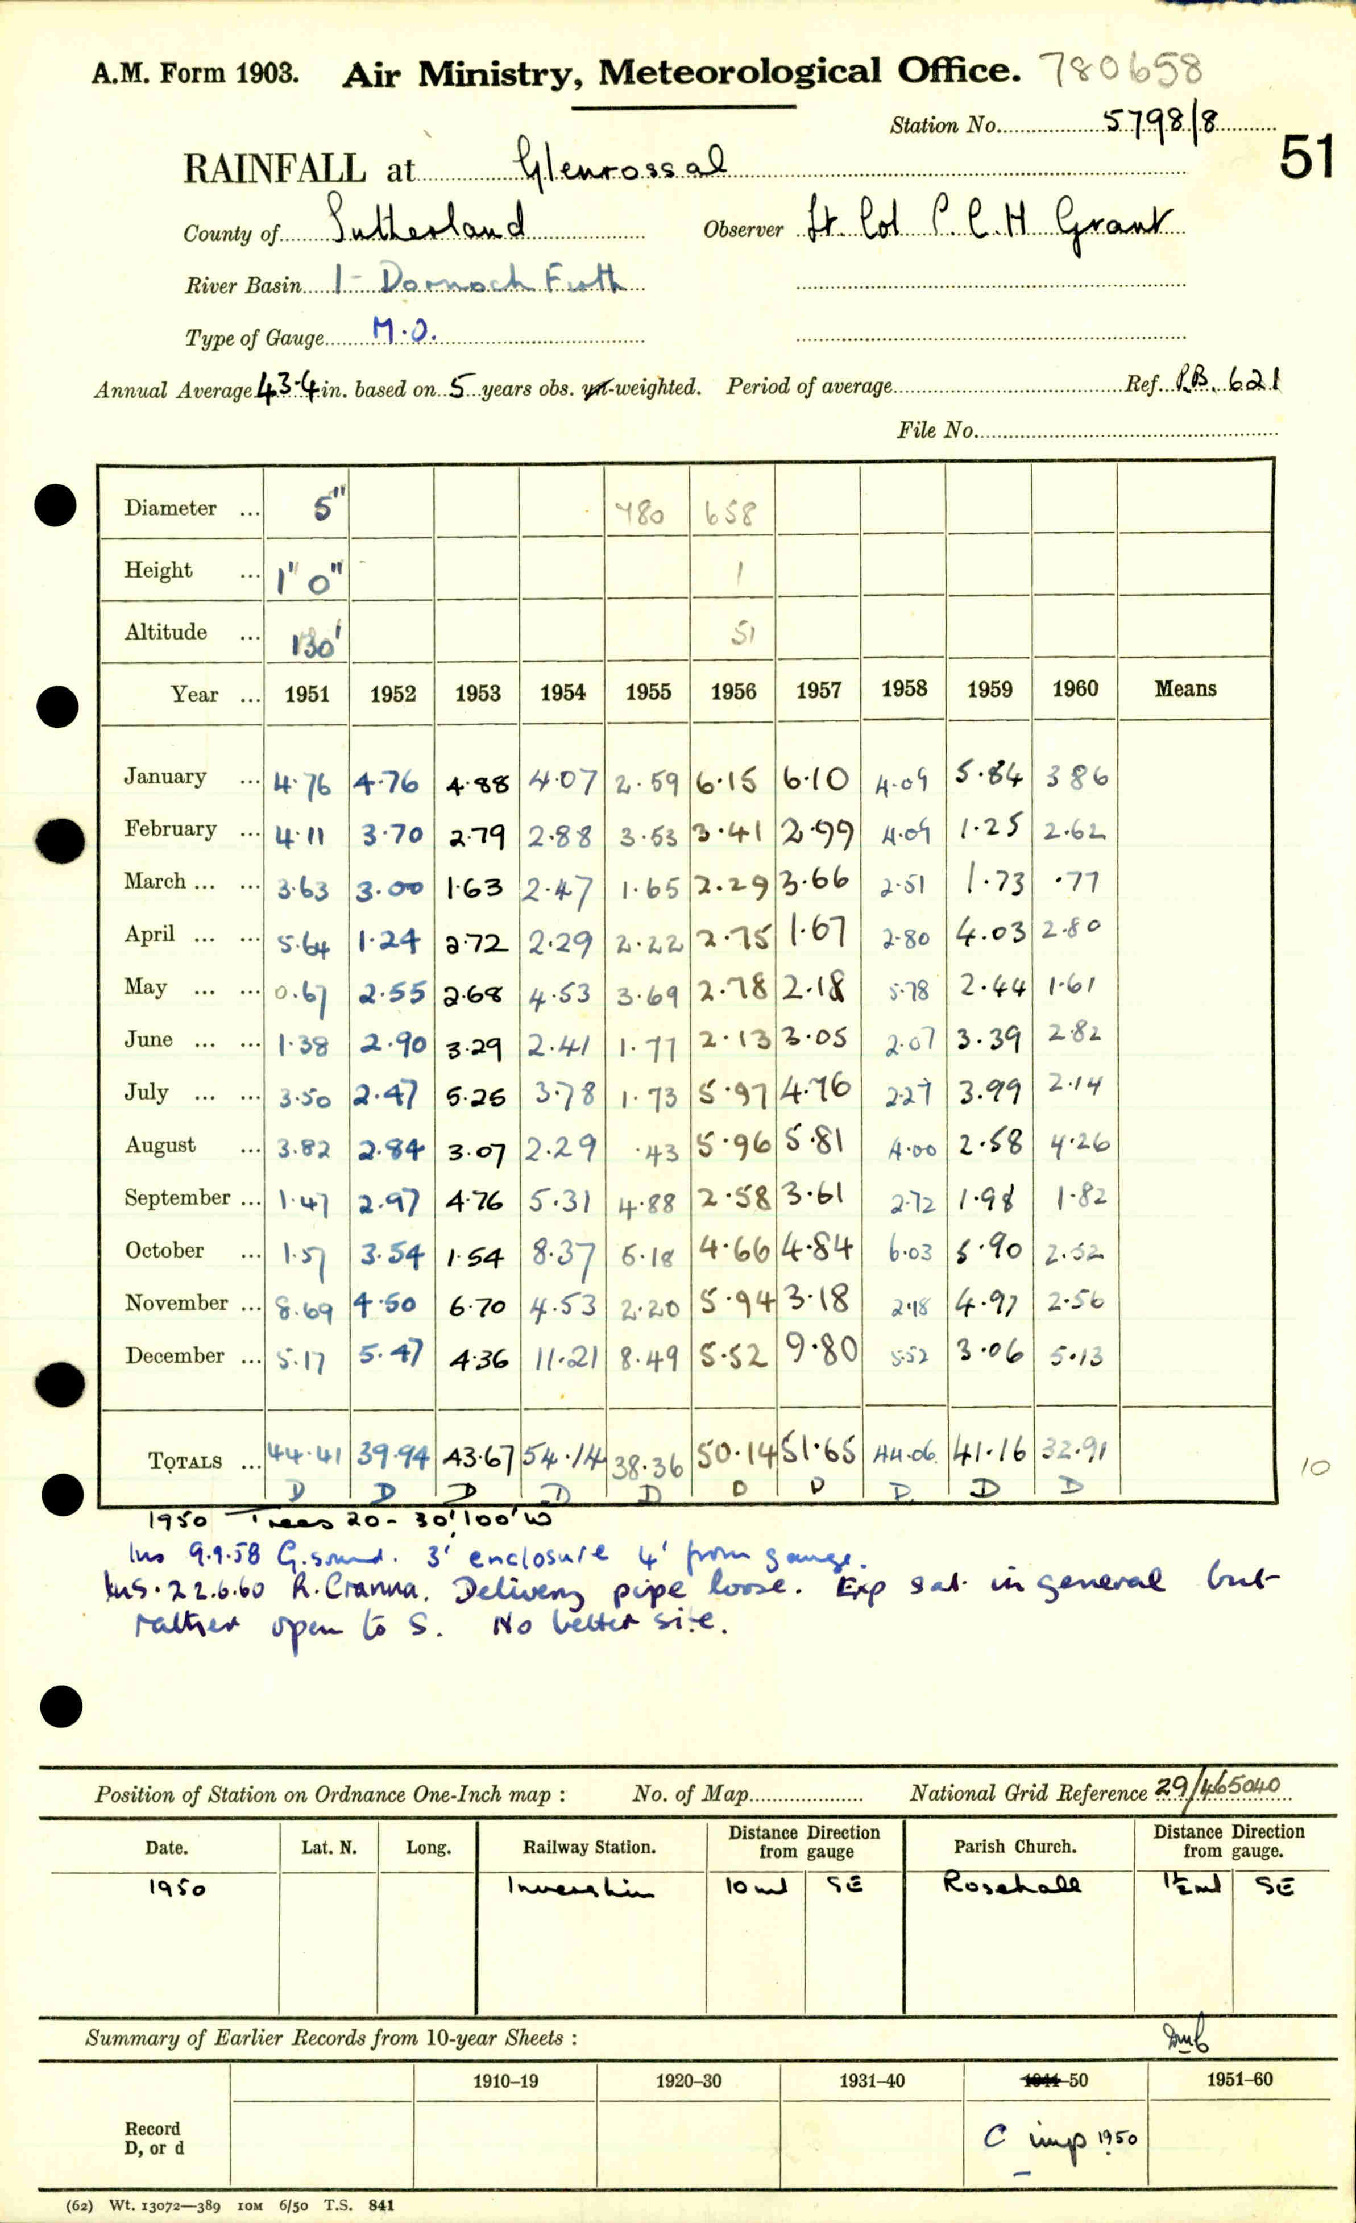 A.M. Form 1903. Air Ministry, Meteorological Office. 780658
Station No. 5798/8
51
RAINFALL at Glenrossal
County of Sutherland Observer Lt. Col P. C. H Grant
River Basin 1- Dornoch Firth
Type of Gauge M.O.
Annual Average 43.4 in. based on 5 years obs. -weighted. Period of average Ref. P.B. 621
File No.
Diameter ... 5" 780 658
Height ... 1" 0" 1
Altitude ... 130' 51
Year ... 1951 1952 1953 1954 1955 1956 1957 1958 1959 1960 Means
January ... 4.76 4.76 4.88 4.07 2.59 6.15 6.10 4.09 5.84 3.86
February ... 4.11 3.70 2.79 2.88 3.53 3.41 2.99 4.09 1.25 2.62
March ... ... 3.63 3.00 1.63 2.47 1.65 2.29 3.66 2.51 1.73 .77
April ... ... 5.64 1.24 2.72 2.29 2.22 2.75 1.67 2.80 4.03 2.80
May ... ... 0.67 2.55 2.68 4.53 3.69 2.78 2.18 5.78 2.44 1.61
June ... ... 1.38 2.90 3.29 2.41 1.77 2.13 3.05 2.07 3.39 2.82
July ... ... 3.50 2.47 5.25 3.78 1.73 5.97 4.76 2.27 3.99 2.14
August ... 3.82 2.84 3.07 2.29 .43 5.96 5.81 4.00 2.58 4.26
September ... 1.47 2.97 4.76 5.31 4.88 2.58 3.61 2.72 1.98 1.82
October ... 1.57 3.54 1.54 8.37 5.18 4.66 4.84 6.03 5.90 2.52
November ... 8.69 4.50 6.70 4.53 2.20 5.94 3.18 2.18 4.97 2.56
December ... 5.17 5.47 4.36 11.21 8.49 5.52 9.80 5.52 3.06 5.13
TOTALS ... 44.41 39.94 43.67 54.14 38.36 50.14 51.65 44.06 41.16 32.91 10
D D D D D D D D D D
1950 Trees 20 - 30' 100' W
Ins 9.9.58 3' enclosure 4' from gauge.
Ins. 22.6.60 R. Cranna. Delivery pipe loose. Exp sat. in general but
rather open to S. No better site.
Position of Station on Ordnance One-Inch map : No. of Map National Grid Reference 29/465040
Date. Lat. N. Long. Railway Station. Distance from gauge Direction Parish Church. Distance from gauge. Direction
1950 Invershin 10 ml SE Rosehall 1½ ml SE
Summary of Earlier Records from 10-year Sheets :
1910-19 1920-30 1931-40 1941-50 1951-60
Record
D, or d
C imp 1950
(62) Wt. 13072—389 10M 6/50 T.S. 841